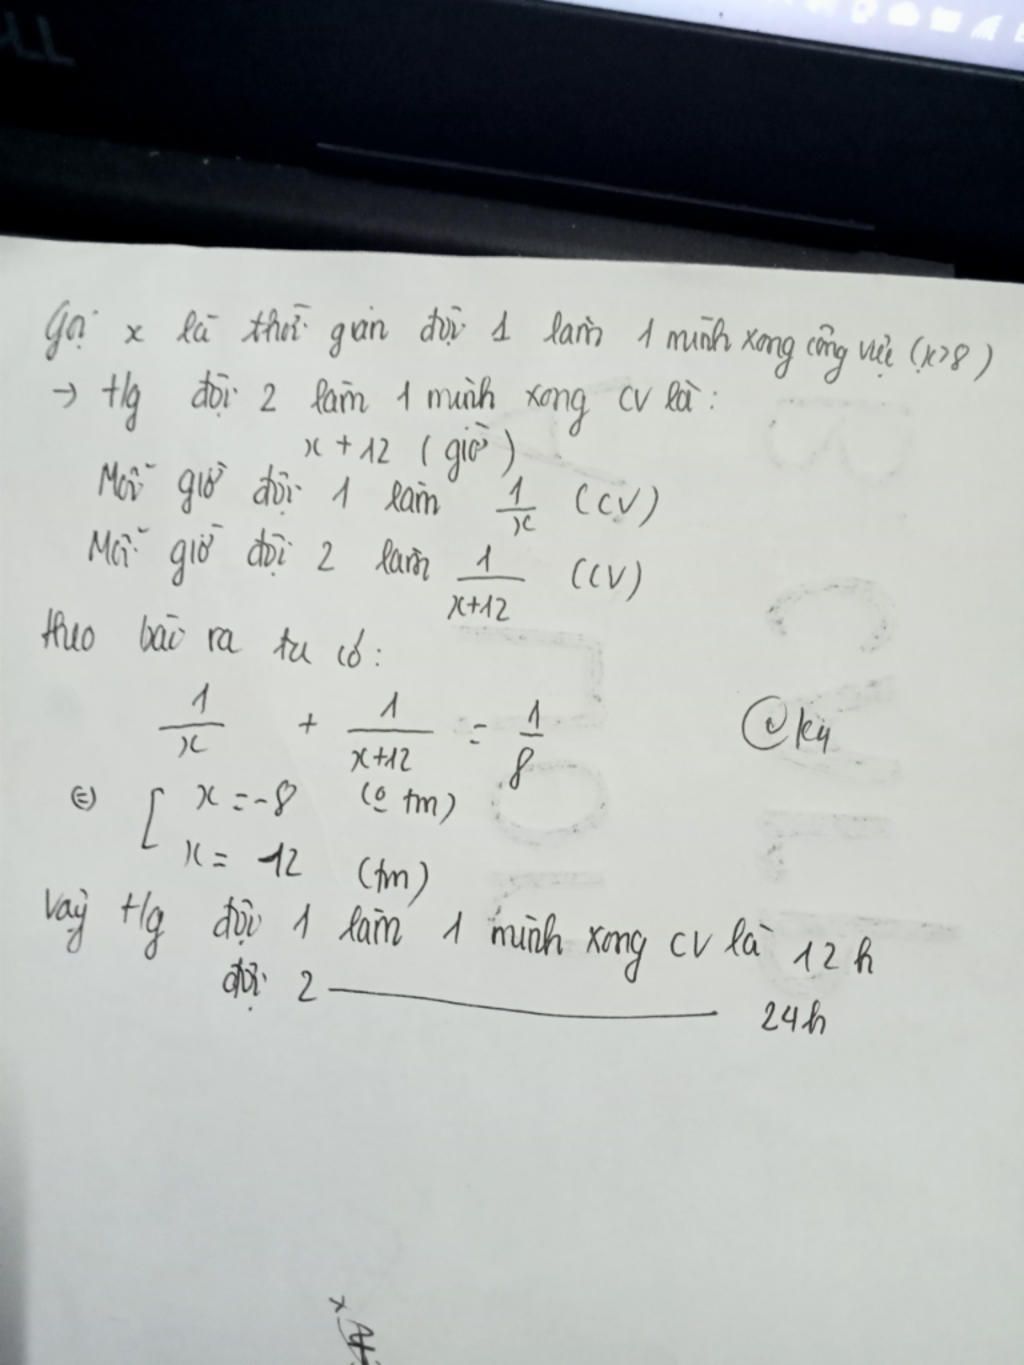 Gọi x là thời gian đội 1 làm 1 mình xong công việc (x>8)
→ t/g đội 2 làm 1 mình xong CV là:
x + 12 (giờ)
Mỗi giờ đội 1 làm 1/x (CV)
Mỗi giờ đội 2 làm 1/x+12 (CV)
theo bài ra ta có:
1/x + 1/x+12 = 1/8
@ky
⇔ [ x = -8 (o tm)
x = 12 (tm)
Vậy t/g đội 1 làm 1 mình xong CV là 12h
đội 2 ——— 24h